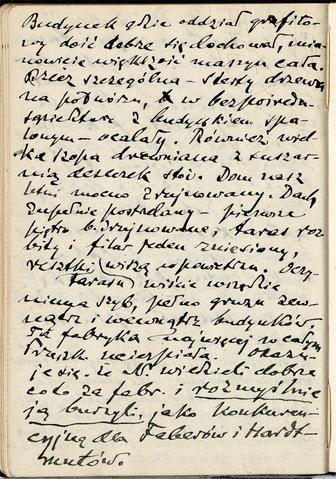 Budynek gdzie oddział grafito-
wy dość dobrze się dochował, mia-
nowicie większość maszyn cała.
Rzecz szczególna – sterty drzewa
na podwórzu, w bezpośredn.
sąsiedztwie z budynkiem spa-
lonym – ocalały. Również wiel-
ka szopa drewniana z suszar-
nią deseczek stoi. Dom nasz
letni mocno zrujnowany. Dach
zupełnie postrzelany – pierwsze
piętro b. zrujnowane, taras roz-
bity i filar jeden zniesiony,
resztki wiszą w powietrzu. Oczy-
tarasu wiście wszędzie
niema szyb, pełno gruzu zew-
nątrz i wewnątrz budynków.
Ta fabryka najwięcej w całym
Pruszk. ucierpiała. Okazu-
je się, że N. wiedzieli dobrze
co to za fabr. i rozmyślnie
ją burzyli, jako konkuren-
cyjną dla Faberów i Hardt-
muthów.